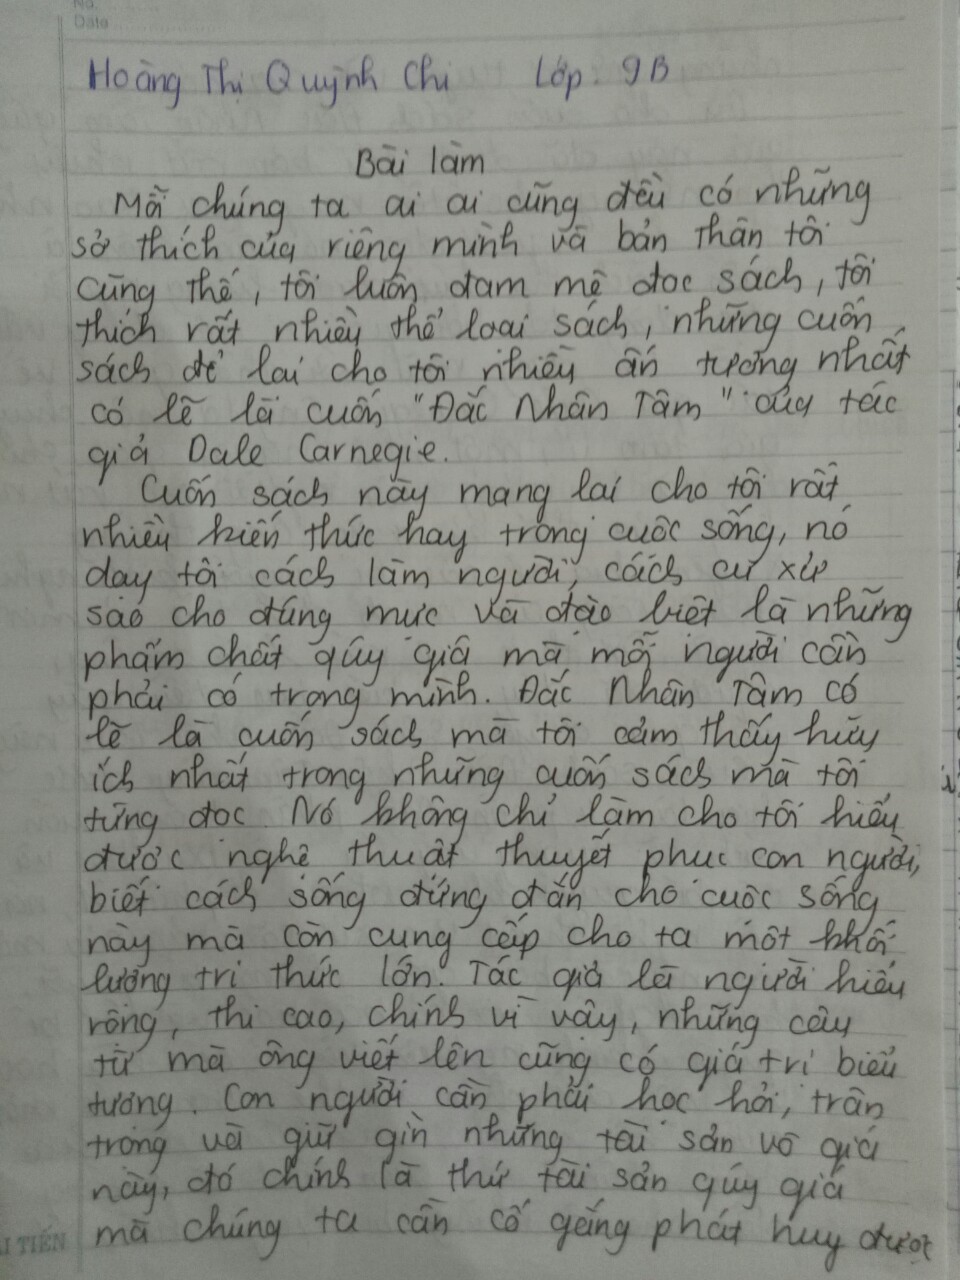 No.
Date
Hoàng Thị Quỳnh Chi Lớp: 9B
Bài làm
Mỗi chúng ta ai ai cũng đều có những
sở thích của riêng mình và bản thân tôi
cũng thế, tôi luôn đam mê đọc sách, tôi
thích rất nhiều thể loại sách, những cuốn
sách để lại cho tôi nhiều ấn tượng nhất
có lẽ là cuốn "Đắc Nhân Tâm" của tác
giả Dale Carnegie.
Cuốn sách này mang lại cho tôi rất
nhiều kiến thức hay trong cuộc sống, nó
dạy tôi cách làm người, cách cư xử
sao cho đúng mực và đặc biệt là những
phẩm chất quý giá mà mỗi người cần
phải có trong mình. Đắc Nhân Tâm có
lẽ là cuốn sách mà tôi cảm thấy hữu
ích nhất trong những cuốn sách mà tôi
từng đọc. Nó không chỉ làm cho tôi hiểu
được nghệ thuật thuyết phục con người,
biết cách sống đứng đắn cho cuộc sống
này mà còn cung cấp cho ta một khối
lượng tri thức lớn. Tác giả là người hiểu
rộng, thi cao, chính vì vậy, những câu
từ mà ông viết lên cũng có giá trị biểu
tượng. Con người cần phải học hỏi, trân
trọng và giữ gìn những tài sản vô giá
này, đó chính là thứ tài sản quý giá
mà chúng ta cần cố gắng phát huy được
TIẾN